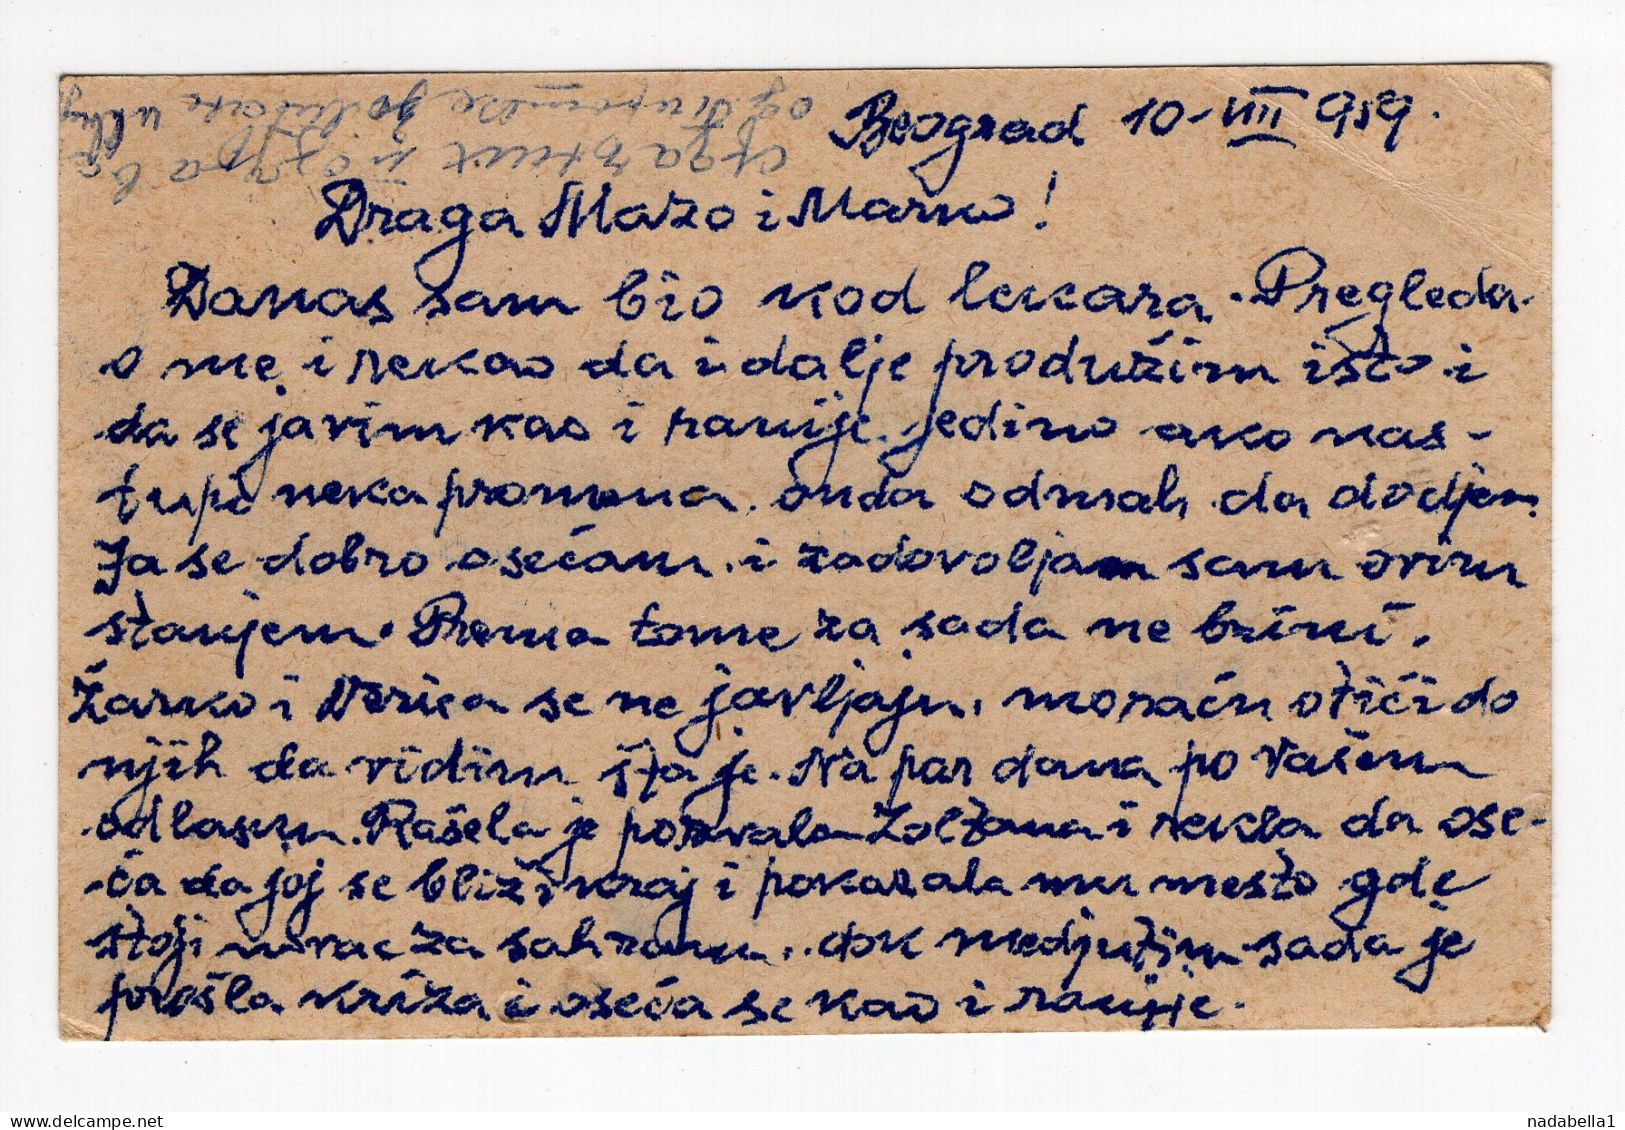 Beograd 10-VIII 959.
Draga Mazo i Marko!
Danas sam bio kod lekara. Pregleda-
o me i rekao da i dalje produžim isto i
da se javim kao i ranije. jedino ako nas-
tupi neka promena. onda odmah da dodjem.
Ja se dobro osećam. i zadovoljam sam ovim
stanjem. Prema tome za sada ne brini.
Žarko i Verica se ne javljaju, moraću otići do
njih da vidim šta je. Na par dana po Vašem
odlasku. Rašela je pozvala Zoltana i rekla da ose-
ća da joj se bliži kraj i pokazala mu mesto gde
stoji novac za sahranu. medjutim sada je
prošla kriza i oseća se kao i ranije.
nadabella1